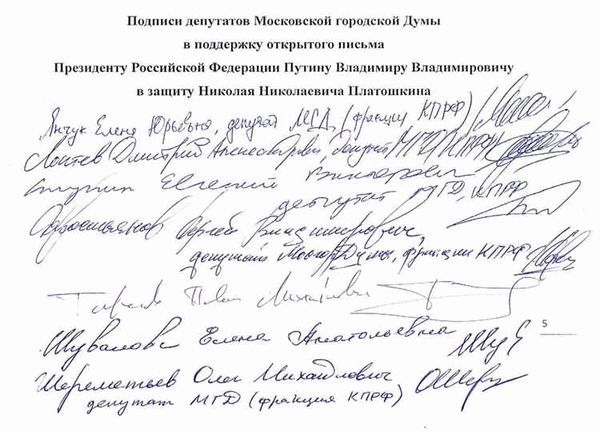 Подписи депутатов Московской городской Думы
в поддержку открытого письма
Президенту Российской Федерации Путину Владимиру Владимировичу
в защиту Николая Николаевича Платошкина
Янчук Елена Юрьевна, депутат МГД (фракции КПРФ)
Локтев Дмитрий Александрович, депутат МГД КПРФ
Ступин Евгений Викторович
депутат МГД, КПРФ
Савостьянов Сергей Владимирович,
депутат Мосгор Думы, фракции КПРФ
Тарасов Павел Михайлович
5
Шувалова Елена Анатольевна
Шереметьев Олег Михайлович
депутат МГД (фракция КПРФ)